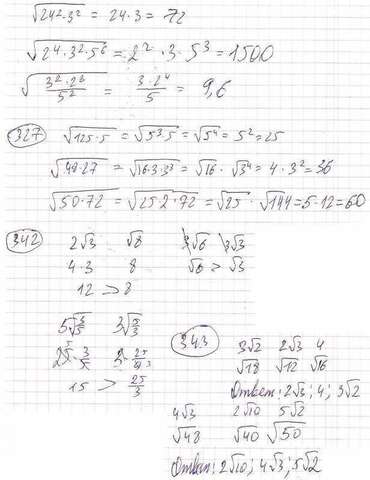 √24²·3² = 24·3 = 72
√2⁴·3²·5⁶ = 2²·3·5³ = 1500
√3²·2⁸/5² = 3·2⁴/5 = 9,6
327 √125·5 = √5³·5 = √5⁴ = 5² = 25
√48·27 = √16·3·3³ = √16 · √3⁴ = 4·3² = 36
√50·72 = √25·2·72 = √25 · √144 = 5·12 = 60
342
2√3 √8 √6 √3
4·3 8 √6 > √3
12 > 8
3√
25/3
15 > 25/3
343
3√2 2√3 4
√18 √12 √16
Ответ: 2√3; 4; 3√2
4√3 2√10 5√2
√48 √40 √50
Ответ: 2√10; 4√3; 5√2